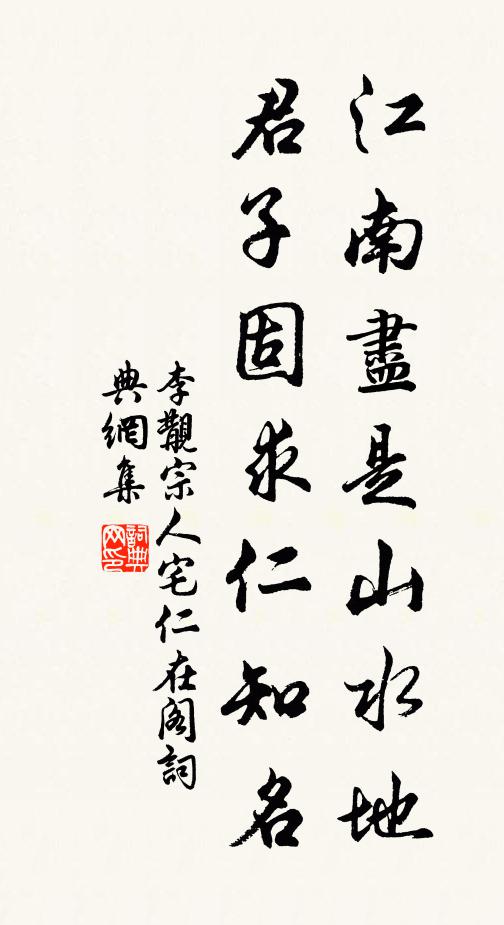 江南盡是山水地
君子固求仁知名
李覯宗人宅仁在阁詞
典網集
詞典
网印